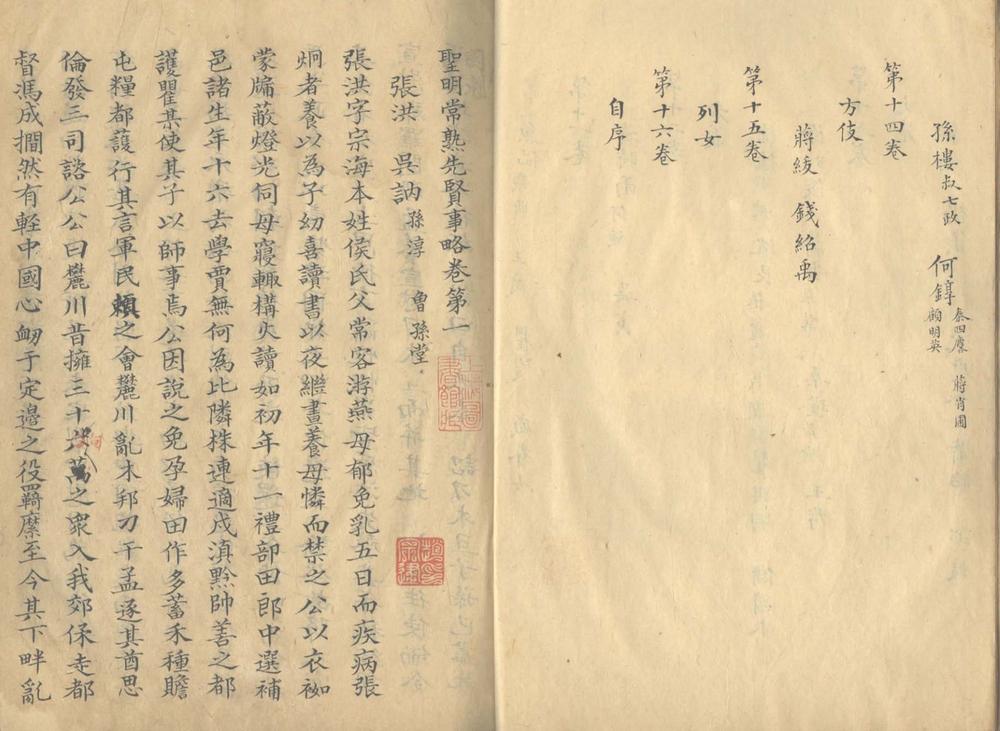 孫樓叔七政 何錞秦四麐顧明英 蔣肖圃
第十四卷
方伎
蔣綾 錢紹禹
第十五卷
列女
第十六卷
自序
聖明常熟先賢事略卷第一
張洪 吳訥孫淳 魯孫堂
張洪字宗海本姓侯氏父常客游燕母郁免乳五日而疾病張
炯者養以為子幼喜讀書以夜繼晝養母憐而禁之公以衣袽
蒙牖蔽燈光伺母寢輙構火讀如初年十一禮部田郎中選補
邑諸生年十六去學賈無何為比隣株連適戍滇黔帥善之都
護瞿某使其子以師事焉公因說之免孕婦田作多蓄禾種贍
屯糧都護行其言軍民頼之會麓川亂木邦刀干孟逐其酋思
倫發三司諮公公曰麓川昔擁三十萬之眾入我郊保走都
督馮成攔然有輕中國心衂于定邊之役羈縻至今其下畔亂